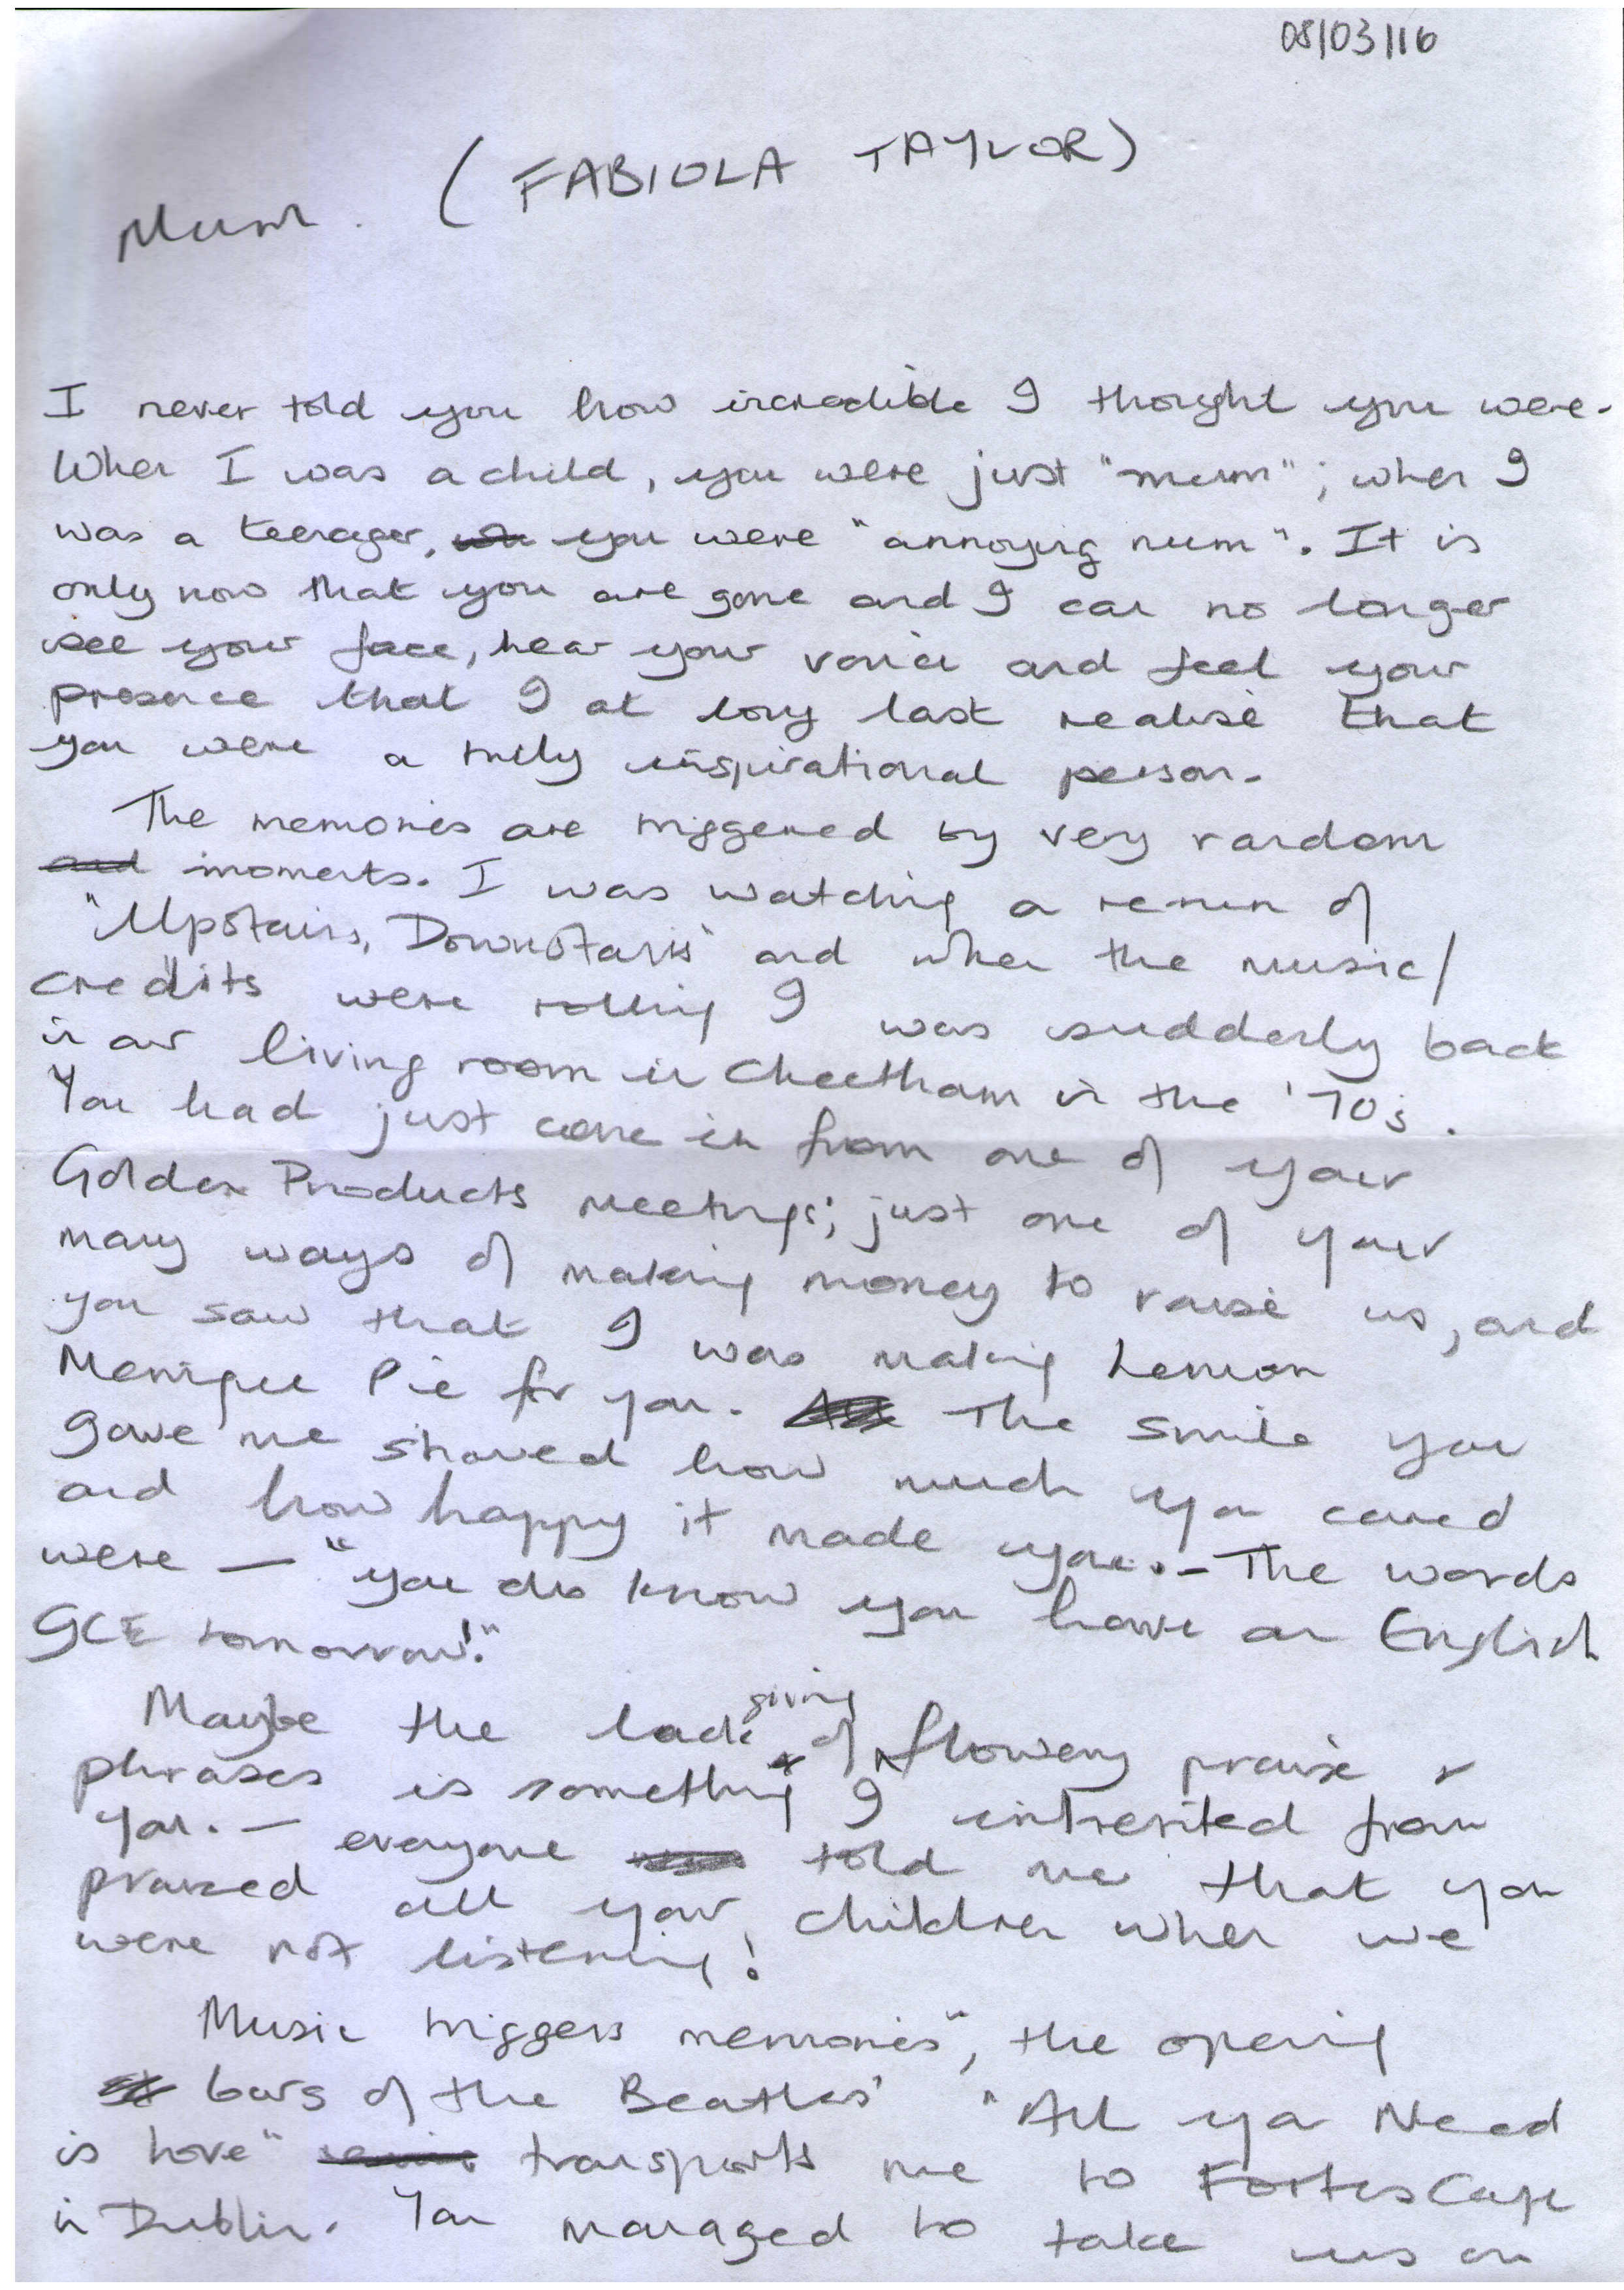 08/03/16
Mum. (FABIOLA TAYLOR)
I never told you how incredible I thought you were.
When I was a child, you were just "mum"; when I
was a teenager, you were "annoying mum". It is
only now that you are gone and I can no longer
see your face, hear your voice and feel your
presence that I at long last realise that
you were a truly inspirational person.
The memories are triggered by very random
and moments. I was watching a rerun of
"Upstairs, Downstairs" and when the music/
credits were rolling I was suddenly back
in our living room in Cheetham in the '70s.
You had just come in from one of your
Golden Products meetings; just one of your
many ways of making money to raise us, and
you saw that I was making Lemon
Meringue Pie for you. The smile you
gave me showed how much you cared
and how happy it made you. - The words
were — "you do know you have an English
GCE tomorrow!"
Maybe the lack of giving flowery praise &
phrases is something I inherited from
you. — everyone told me that you
praised all your children when we
were not listening!
Music triggers memories", the opening
bars of the Beatles' "All you Need
is Love" transports me to Fortes Cafe
in Dublin. You managed to take us on